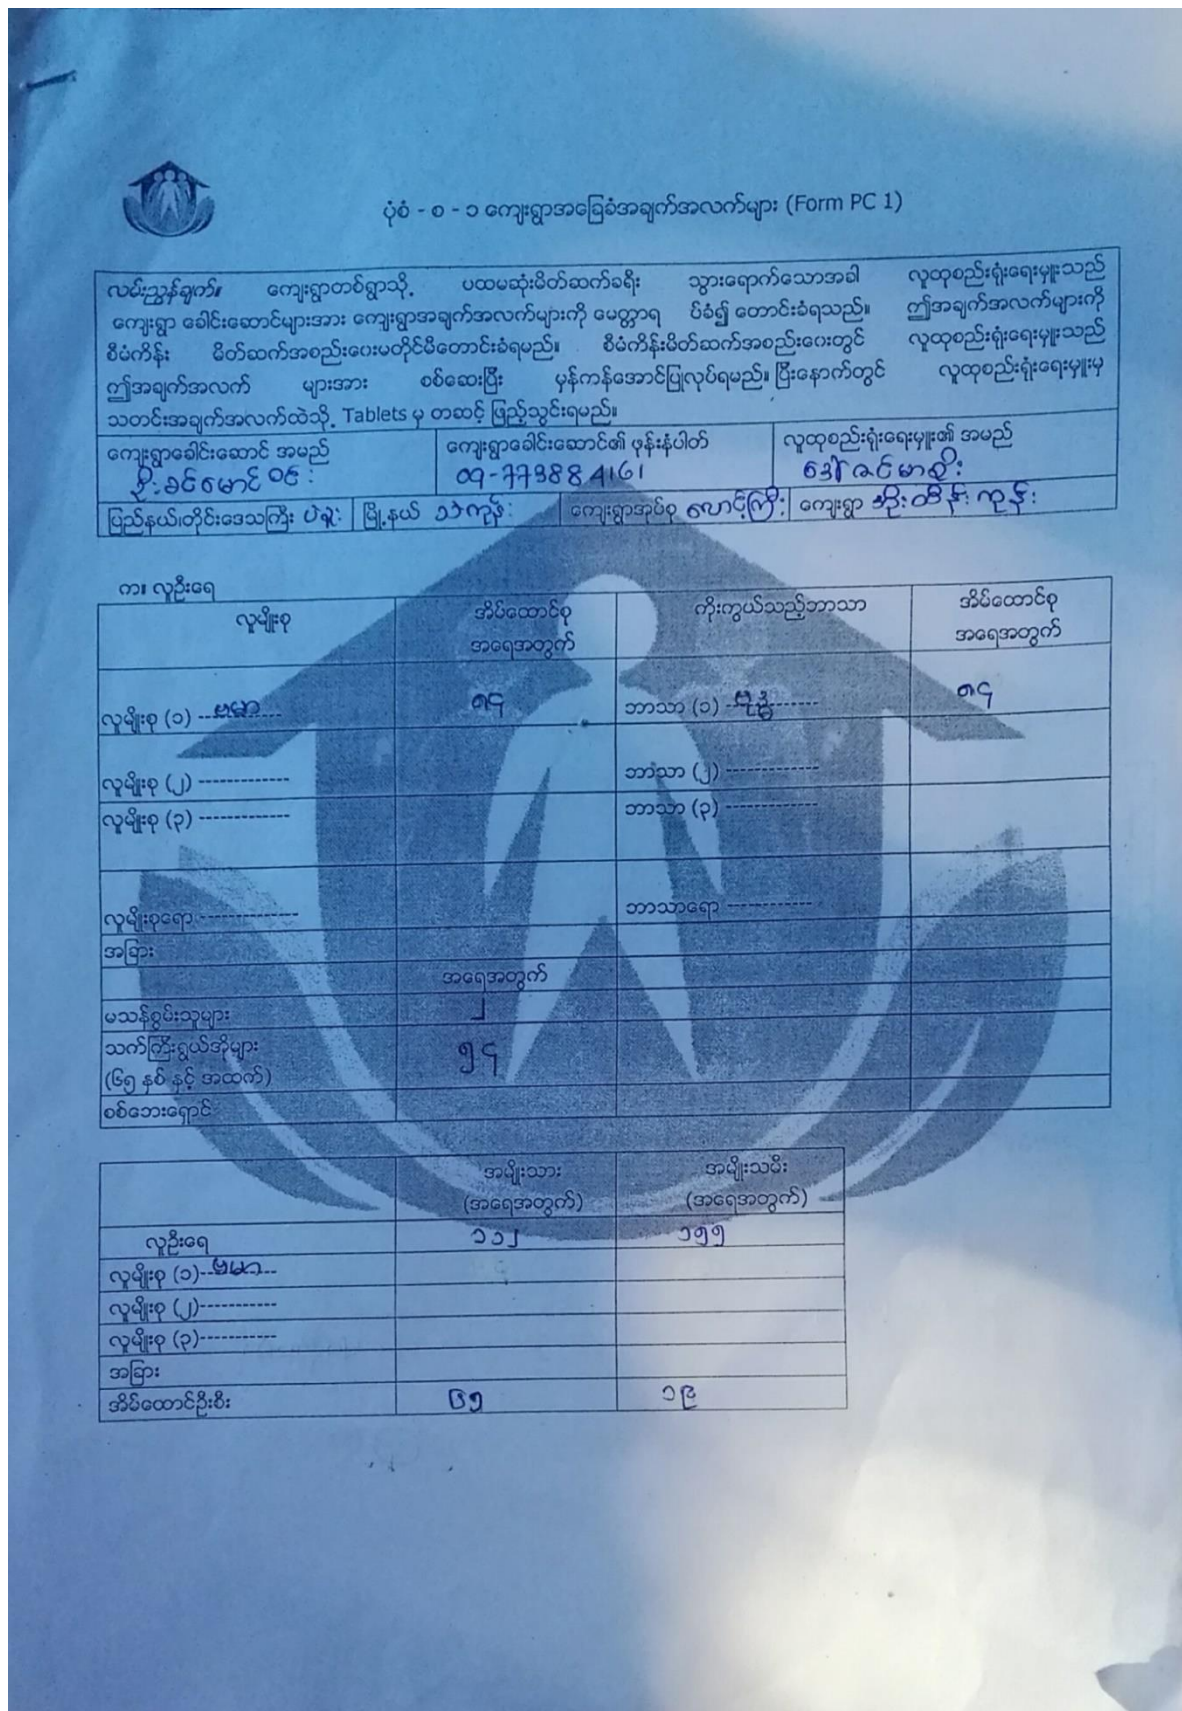 ပုံစံ - စ - ၁ ကျေးရွာအခြေခံအချက်အလက်များ (Form PC 1)
လမ်းညွှန်ချက်။ ကျေးရွာတစ်ရွာသို့ ပထမဆုံးမိတ်ဆက်ခရီး သွားရောက်သောအခါ လူထုစည်းရုံးရေးမှူးသည်
ကျေးရွာ ခေါင်းဆောင်များအား ကျေးရွာအချက်အလက်များကို မေတ္တာရ ပ်ခံ၍ တောင်းခံရသည်။ ဤအချက်အလက်များကို
စီမံကိန်း မိတ်ဆက်အစည်းဝေးမတိုင်မီတောင်းခံရမည်။ စီမံကိန်းမိတ်ဆက်အစည်းဝေးတွင် လူထုစည်းရုံးရေးမှူးသည်
ဤအချက်အလက် များအား စစ်ဆေးပြီး မှန်ကန်အောင်ပြုလုပ်ရမည်။ ပြီးနောက်တွင် လူထုစည်းရုံးရေးမှူးမှ
သတင်းအချက်အလက်ထဲသို့ Tablets မှ တဆင့် ဖြည့်သွင်းရမည်။
ကျေးရွာခေါင်းဆောင် အမည် ကျေးရွာခေါင်းဆောင်၏ ဖုန်းနံပါတ် လူထုစည်းရုံးရေးမှူး၏ အမည်
ဦးခင်မောင်ဝင်း 09-773884161 ဒေါ်ဇင်မာဖြိုး
ပြည်နယ်၊တိုင်းဒေသကြီး ပဲခူး မြို့နယ် သဲကုန်း ကျေးရွာအုပ်စု လောင့်ကြီး ကျေးရွာ အိုးထိန်းကုန်း
က။ လူဦးရေ
လူမျိုးစု အိမ်ထောင်စု ကိုးကွယ်သည့်ဘာသာ အိမ်ထောင်စု
အရေအတွက် အရေအတွက်
လူမျိုးစု (၁) --ဗမာ-- ၈၄ ဘာသာ (၁) --ဗုဒ္ဓ------- ၈၄
လူမျိုးစု (၂) ------------- ဘာသာ (၂) -------------
လူမျိုးစု (၃) ------------- ဘာသာ (၃) -------------
လူမျိုးစုရော -------------- ဘာသာရော ------------
အခြား
အရေအတွက်
မသန်စွမ်းသူများ ၂
သက်ကြီးရွယ်အိုများ ၅၄
(၆၅ နှစ် နှင့် အထက်)
စစ်ဘေးရှောင်
အမျိုးသား အမျိုးသမီး
(အရေအတွက်) (အရေအတွက်)
လူဦးရေ ၁၁၂ ၁၅၅
လူမျိုးစု (၁)--ဗမာ--
လူမျိုးစု (၂)-----------
လူမျိုးစု (၃)-----------
အခြား
အိမ်ထောင်ဦးစီး ၆၅ ၁၉